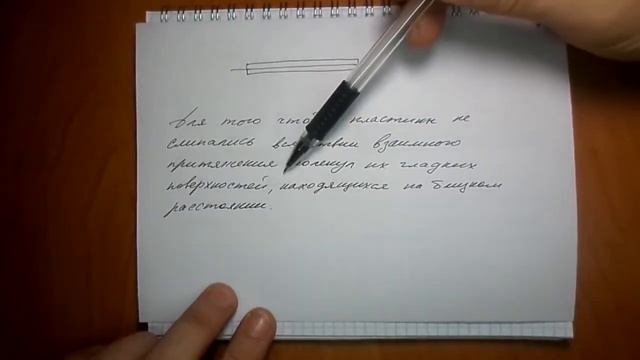 Для того что пластинки не
слипались вследствии взаимного
притяжения молекул их гладких
поверхностей, находящихся на близком
расстоянии.